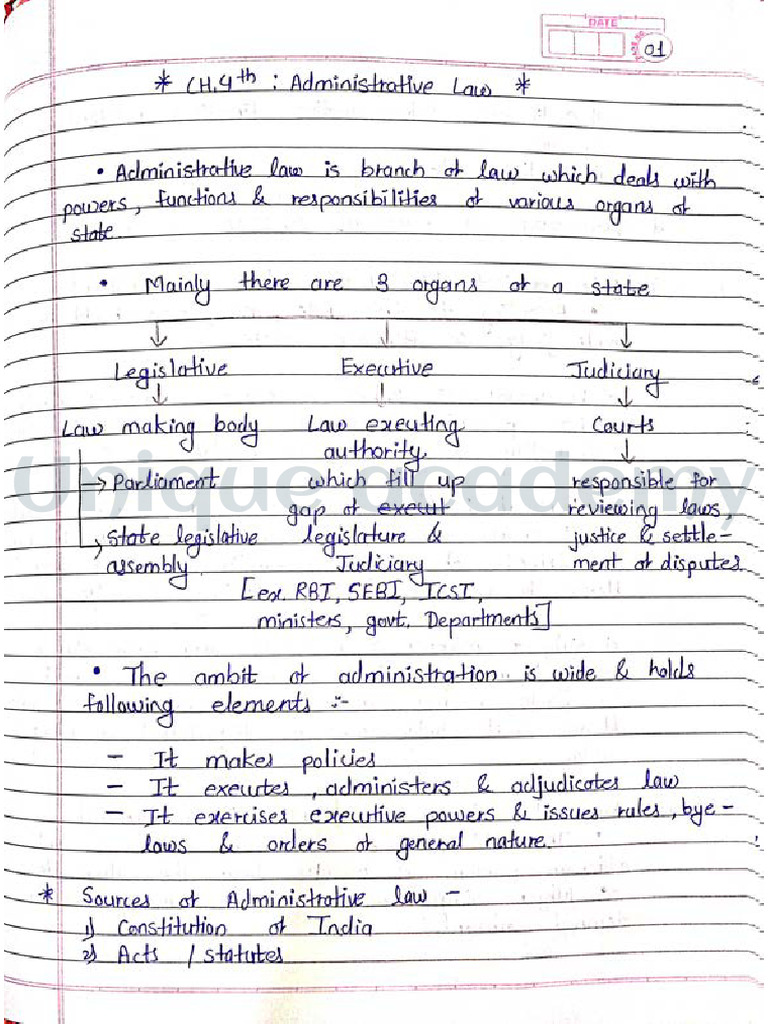 DATE
01
* CH.4th : Administrative Law *
• Administrative law is branch of law which deals with
powers, functions & responsibilities of various organs of
state.
• Mainly there are 3 organs of a state
Legislative Executive Judiciary
Law making body Law executing Courts
authority
→ Parliament which fill up responsible for
gap of execut reviewing laws,
→ State legislative legislature & justice & settle-
assembly Judiciary ment of disputes.
[ex. RBI, SEBI, ICSI,
ministers, govt. Departments]
Unique academy
• The ambit of administration is wide & holds
following elements :-
- It makes policies
- It executes, administers & adjudicates law
- It exercises executive powers & issues rules, bye-
laws & orders of general nature.
* Sources of Administrative law -
1) Constitution of India
2) Acts / statutes